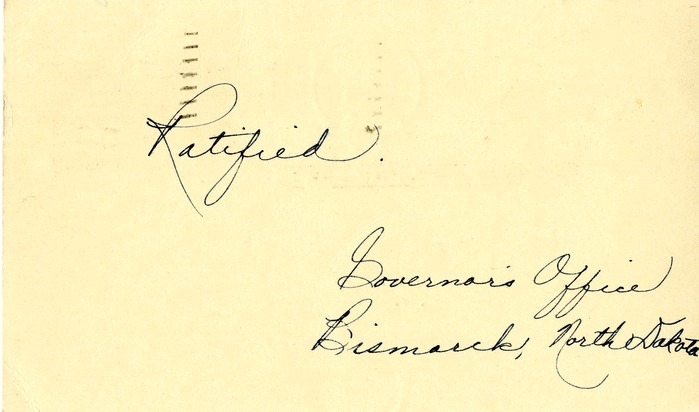 Ratified.
Governor's Office
Bismarck, North Dakota